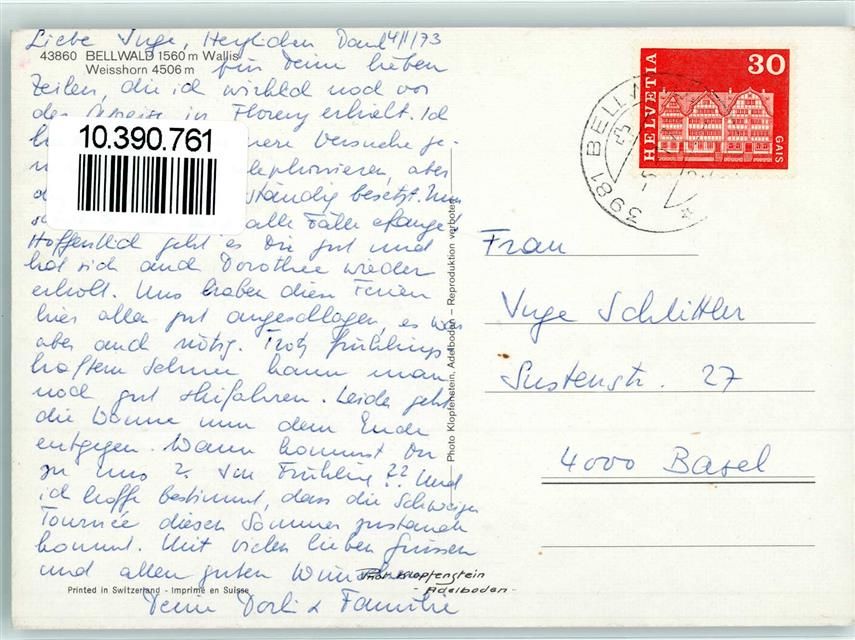 Liebe Inge, Herzlichen Dank 4/II/73
43860 BELLWALD 1560 m Wallis
Weisshorn 4506 m
für Deine lieben
Zeilen, die ich wirklich noch vor
der Abreise in Florenz erhielt. Ich
10.390.761
Versuche ge-
telephonieren, aber
ständig besetzt. Uns
alle Fälle
Hoffentlich geht es Dir gut und
hat sich auch Dorothee wieder
erholt. Uns haben diese Ferien
hier allen gut angeschlagen, es war
aber auch nötig. Trotz frühlings-
haftem Schnee kann man
noch gut skifahren. Leider geht
die Wonne nun dem Ende
entgegen. Wann kommst Du
zu uns? Im Frühling?? Und
ich hoffe bestimmt, dass die Schweizer
Tournée diesen Sommer zustande
kommt. Mit vielen lieben Grüssen
und allen guten Wünschen
Deine Dorli & Familie
Printed in Switzerland - Imprimé en Suisse
Photo Klopfenstein, Adelboden – Reproduktion verboten
Phot. Klopfenstein
- Adelboden -
HELVETIA
30
GAIS
3981 BELLW
Frau
Inge Schlittler
Sustenstr. 27
4000 Basel